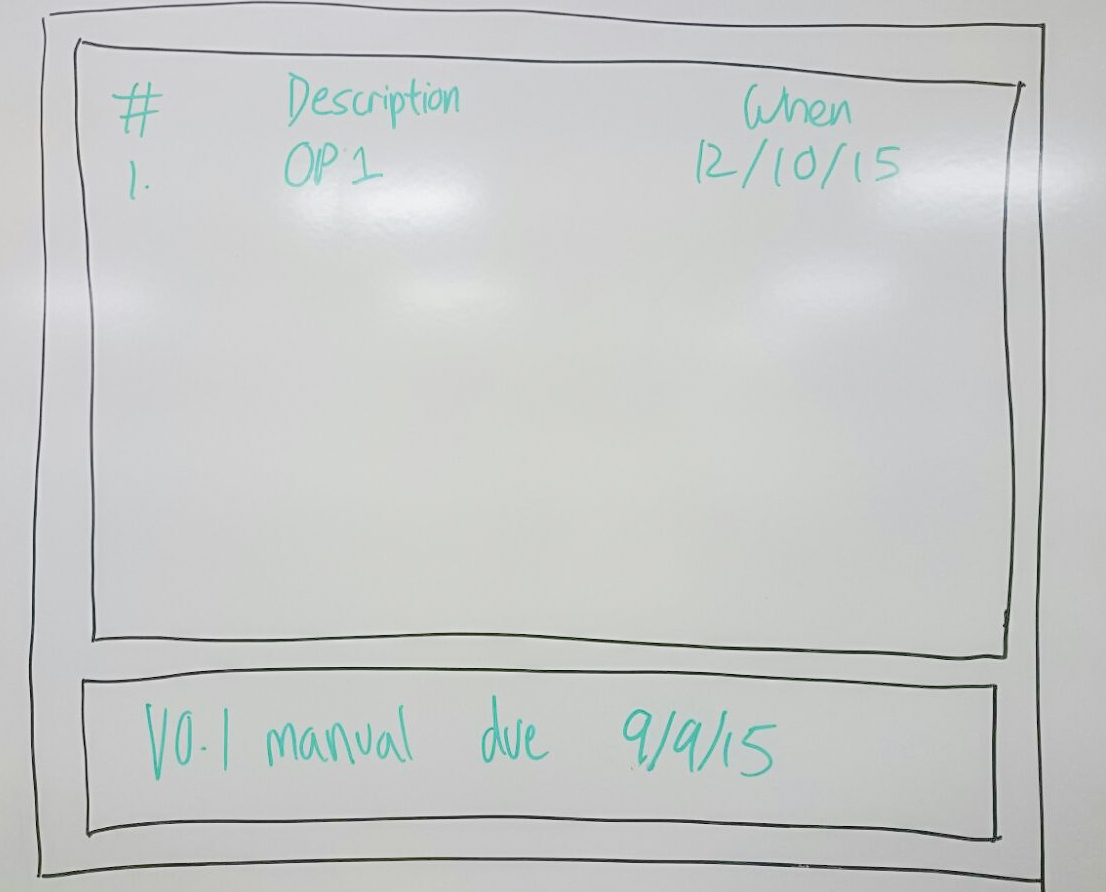 # Description When
1. OP1 12/10/15
V0.1 manual due 9/9/15